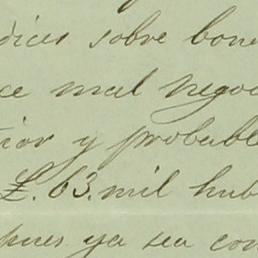 dices sobre bone
ce mal nego
rior y probable
£. 63. mil hub
pues ya sea con